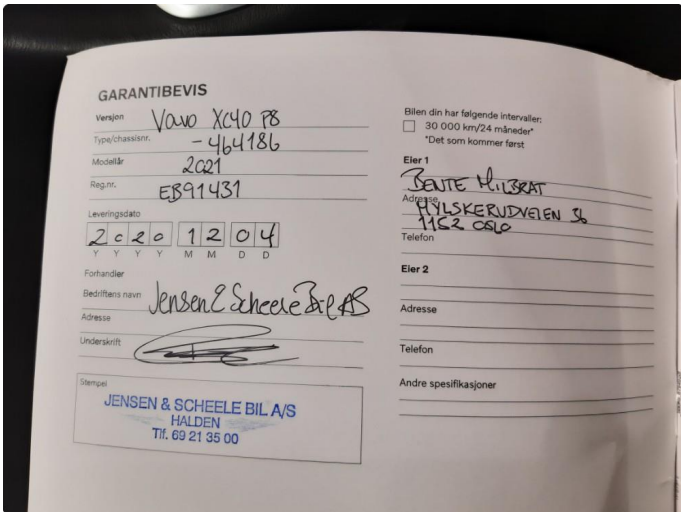 GARANTIBEVIS
Versjon Volvo XC40 P8
Type/chassisnr. - 464186
Modellår 2021
Reg.nr. EB91431
Leveringsdato
2020 12 04
Y Y Y Y M M D D
Forhandler
Bedriftens navn Jensen & Scheele Bil AS
Adresse
Underskrift
Stempel
JENSEN & SCHEELE BIL A/S
HALDEN
Tlf. 69 21 35 00
Bilen din har følgende intervaller:
30 000 km/24 måneder*
*Det som kommer først
Eier 1
BENTE MILBRAT
Adresse
HYLSKERUDVEIEN 36
1152 OSLO
Telefon
Eier 2
Adresse
Telefon
Andre spesifikasjoner